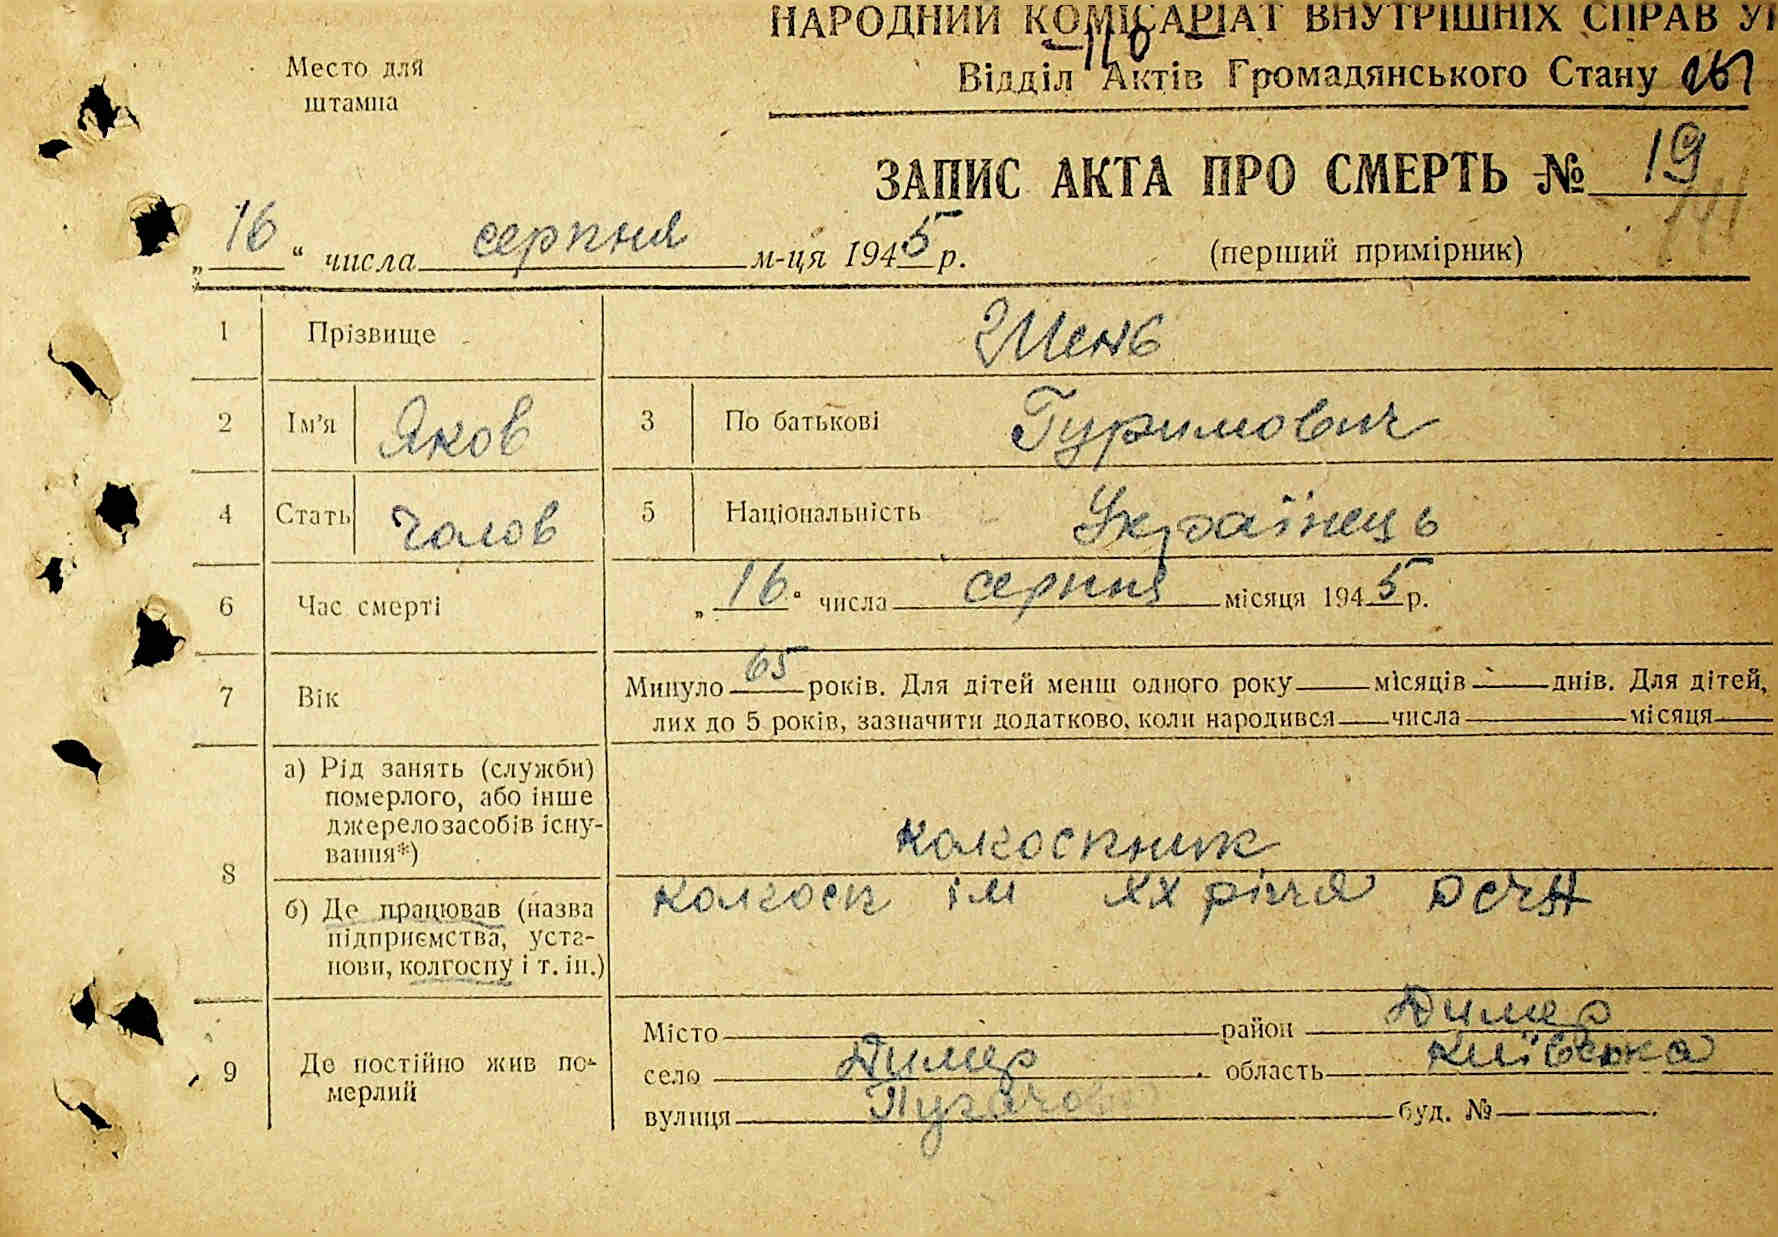 НАРОДНИЙ КОМІСАРІАТ ВНУТРІШНІХ СПРАВ
Место для
штампа
Відділ Актів Громадянського Стану
ЗАПИС АКТА ПРО СМЕРТЬ № 19
„16“ числа серпня м-ця 1945 р.
(перший примірник)
1 Прізвище Шень
2 Ім'я Яков 3 По батькові Гуримович
4 Стать чолов 5 Національність Українець
6 Час смерті „16“ числа серпня місяця 1945 р.
7 Вік Минуло 65 років. Для дітей менш одного року місяців днів. Для дітей,
лих до 5 років, зазначити додатково, коли народився числа місяця
8 а) Рід занять (служби)
померлого, або інше
джерело засобів існу-
вання*)
колхоспник
б) Де працював (назва
підприємства, уста-
нови, колгоспу і т. ін.)
колхосп ім ХХ річчя
9 Де постійно жив по-
мерлий
Місто район Димер
село Димер область Київська
вулиця Пугачова буд. №